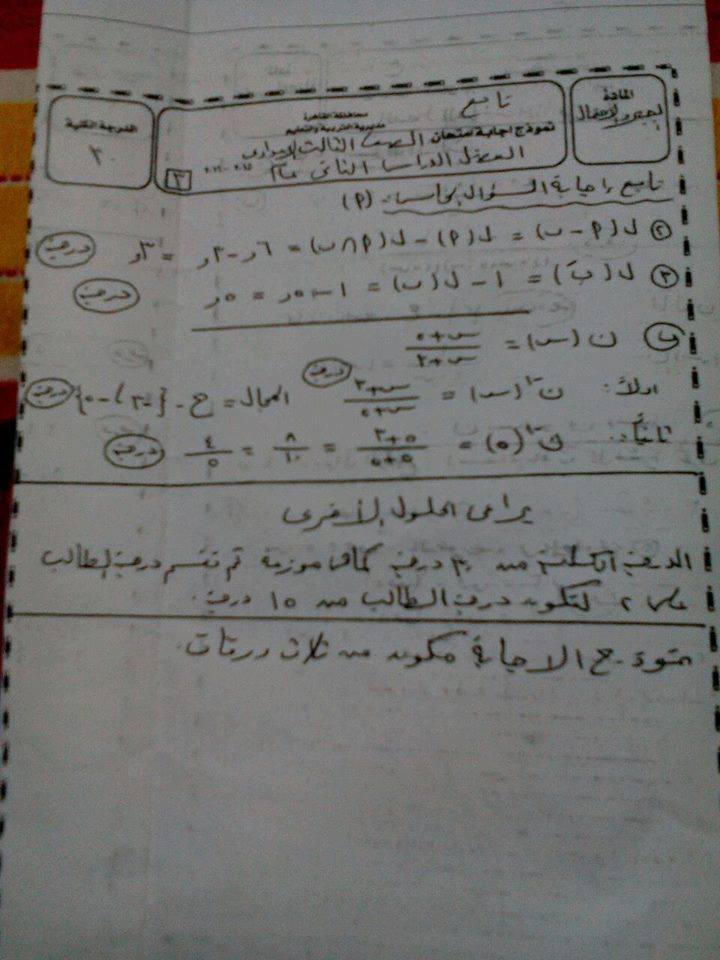 المادة
الجبر والإحتمال
تابع
محافظة القاهرة
مديرية التربية والتعليم
نموذج اجابة امتحان الصف الثالث الإعدادى
الفصل الدراسى الثانى عام
٣
الدرجة الكلية
٣٠
تابع إجابة السؤال الخامس: (٢)
② ل(٢ - ب) = ل(٢) - ل(٢ ∩ ب) = ٦ر - ٣ر = ٣ر درجة
③ ل(بَ) = ١ - ل(ب) = ١ - ٥ر = ٥ر درجة
ب ن(س) = (س + ٥) / (س + ٣)
اولاً: ن⁻¹(س) = (س + ٣) / (س + ٥) درجة المجال = ح - {-٣، -٥} درجة
ثانياً: ن⁻¹(٥) = (٥ + ٣) / (٥ + ٥) = ٨/١٠ = ٤/٥ درجة
يراعى الحلول الأخرى
الدرجة الكلية من ٣٠ درجة كما هو موزعة ثم تقسم درجة الطالب
على ٢ لتكون درجة الطالب من ١٥ درجة.
نموذج الاجابة مكون من ثلاث ورقات.